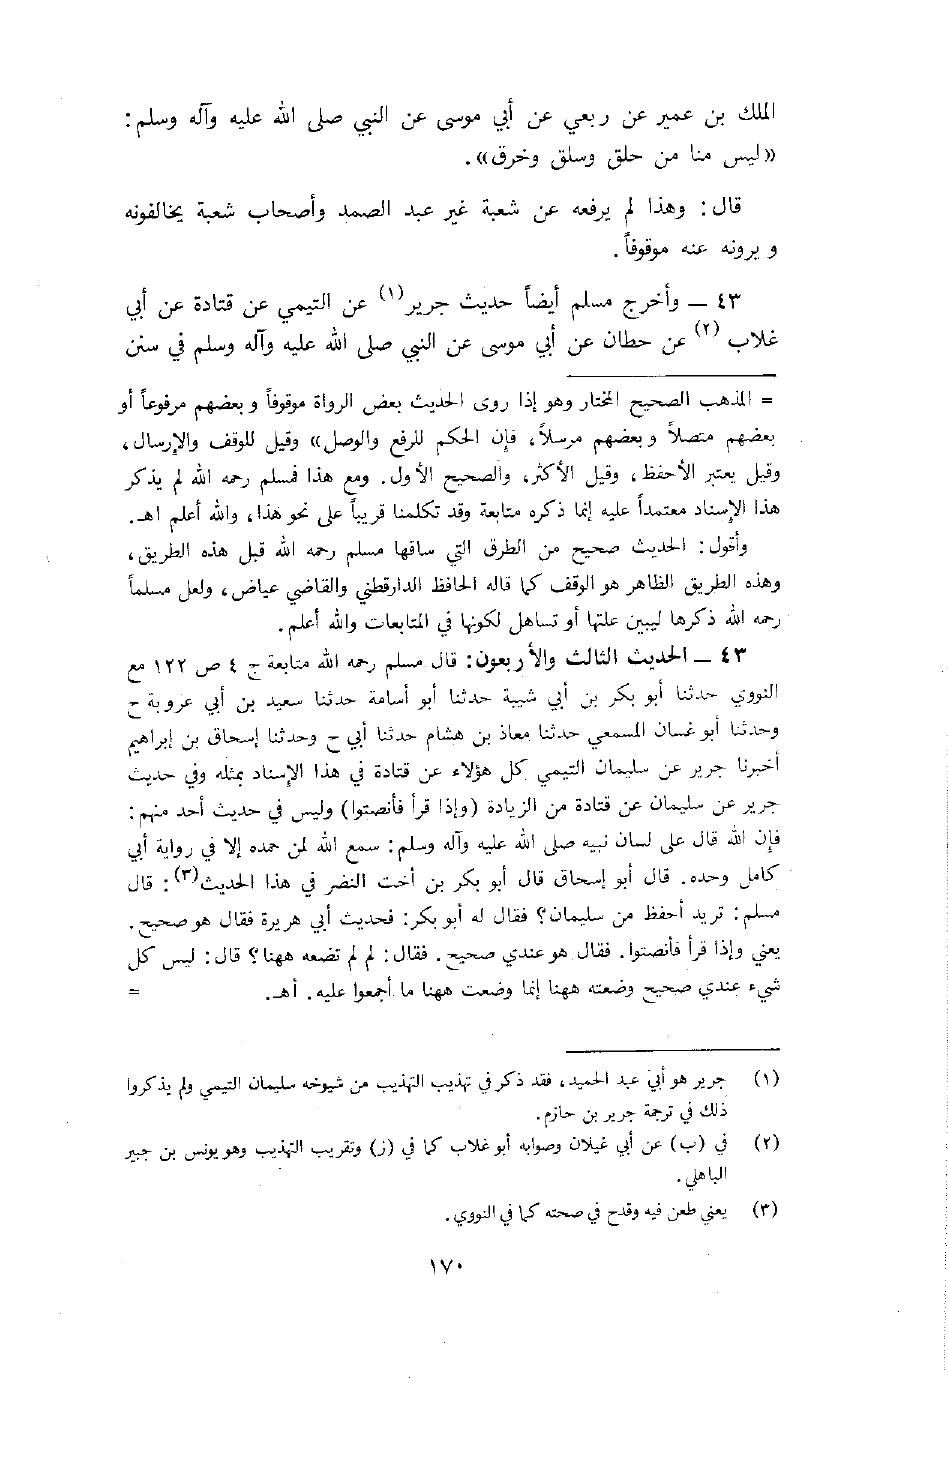 الملك بن عمير عن ربعي عن أبي موسى عن النبي صلى الله عليه وآله وسلم:
«ليس منا من حلق وسلق وخرق».
قال: وهذا لم يرفعه عن شعبة غير عبد الصمد وأصحاب شعبة يخالفونه
ويرونه عنه موقوفاً.
٤٣ — وأخرج مسلم أيضاً حديث جرير(١) عن التيمي عن قتادة عن أبي
غلاب(٢) عن حطان عن أبي موسى عن النبي صلى الله عليه وآله وسلم في سنن
= المذهب الصحيح المختار وهو إذا روى الحديث بعض الرواة موقوفاً وبعضهم مرفوعاً أو
بعضهم متصلاً وبعضهم مرسلاً، فإن الحكم للرفع والوصل» وقيل للوقف والإرسال،
وقيل يعتبر الأحفظ، وقيل الأكثر، والصحيح الأول. ومع هذا فمسلم رحمه الله لم يذكر
هذا الإسناد معتمداً عليه إنما ذكره متابعة وقد تكلمنا قريباً على نحو هذا، والله أعلم اهـ.
وأقول: الحديث صحيح من الطرق التي ساقها مسلم رحمه الله قبل هذه الطريق،
وهذه الطريق الظاهر هو الوقف كما قاله الحافظ الدارقطني والقاضي عياض، ولعل مسلماً
رحمه الله ذكرها ليبين علتها أو تساهل لكونها في المتابعات والله أعلم.
٤٣ — الحديث الثالث والأربعون: قال مسلم رحمه الله متابعة ج ٤ ص ١٢٢ مع
النووي حدثنا أبو بكر بن أبي شيبة حدثنا أبو أسامة حدثنا سعيد بن أبي عروبة ح
وحدثنا أبو غسان المسمعي حدثنا معاذ بن هشام حدثنا أبي ح وحدثنا إسحاق بن إبراهيم
أخبرنا جرير عن سليمان التيمي كل هؤلاء عن قتادة في هذا الإسناد بمثله وفي حديث
جرير عن سليمان عن قتادة من الزيادة (وإذا قرأ فأنصتوا) وليس في حديث أحد منهم:
فإن الله قال على لسان نبيه صلى الله عليه وآله وسلم: سمع الله لمن حمده إلا في رواية أبي
كامل وحده. قال أبو إسحاق قال أبو بكر بن أخت النضر في هذا الحديث(٣): قال
مسلم: تريد أحفظ من سليمان؟ فقال له أبو بكر: فحديث أبي هريرة فقال هو صحيح.
يعني وإذا قرأ فأنصتوا. فقال هو عندي صحيح. فقال: لم لم تضعه ههنا؟ قال: ليس كل
شيء عندي صحيح وضعته ههنا إنما وضعت ههنا ما أجمعوا عليه. أهـ. =
(١) جرير هو أبي عبد الحميد، فقد ذكر في تهذيب التهذيب من شيوخه سليمان التيمي ولم يذكروا
ذلك في ترجمة جرير بن حازم.
(٢) في (ب) عن أبي غيلان وصوابه أبو غلاب كما في (ز) وتقريب التهذيب وهو يونس بن جبير
الباهلي.
(٣) يعني طعن فيه وقدح في صحته كما في النووي.
١٧٠